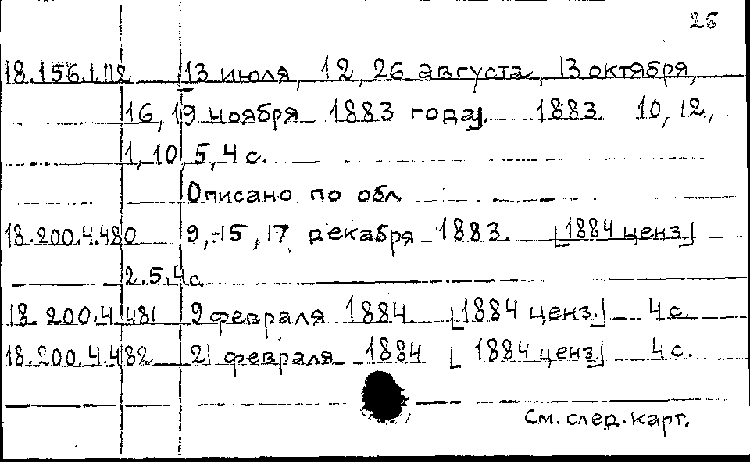 26
18.156.1.112 13 июля, 12, 26 августа, 13 октября,
16, 19 ноября 1883 года]. 1883. 10, 12,
1, 10, 5, 4 с.
Описано по обл.
18.200.4.480 9, 15, 17 декабря 1883. [1884 ценз.]
2.5.4с.
18.200.4.481 9 февраля 1884. [1884 ценз.] 4 с.
18.200.4.482 21 февраля 1884 [1884 ценз.] 4 с.
См. след. карт.